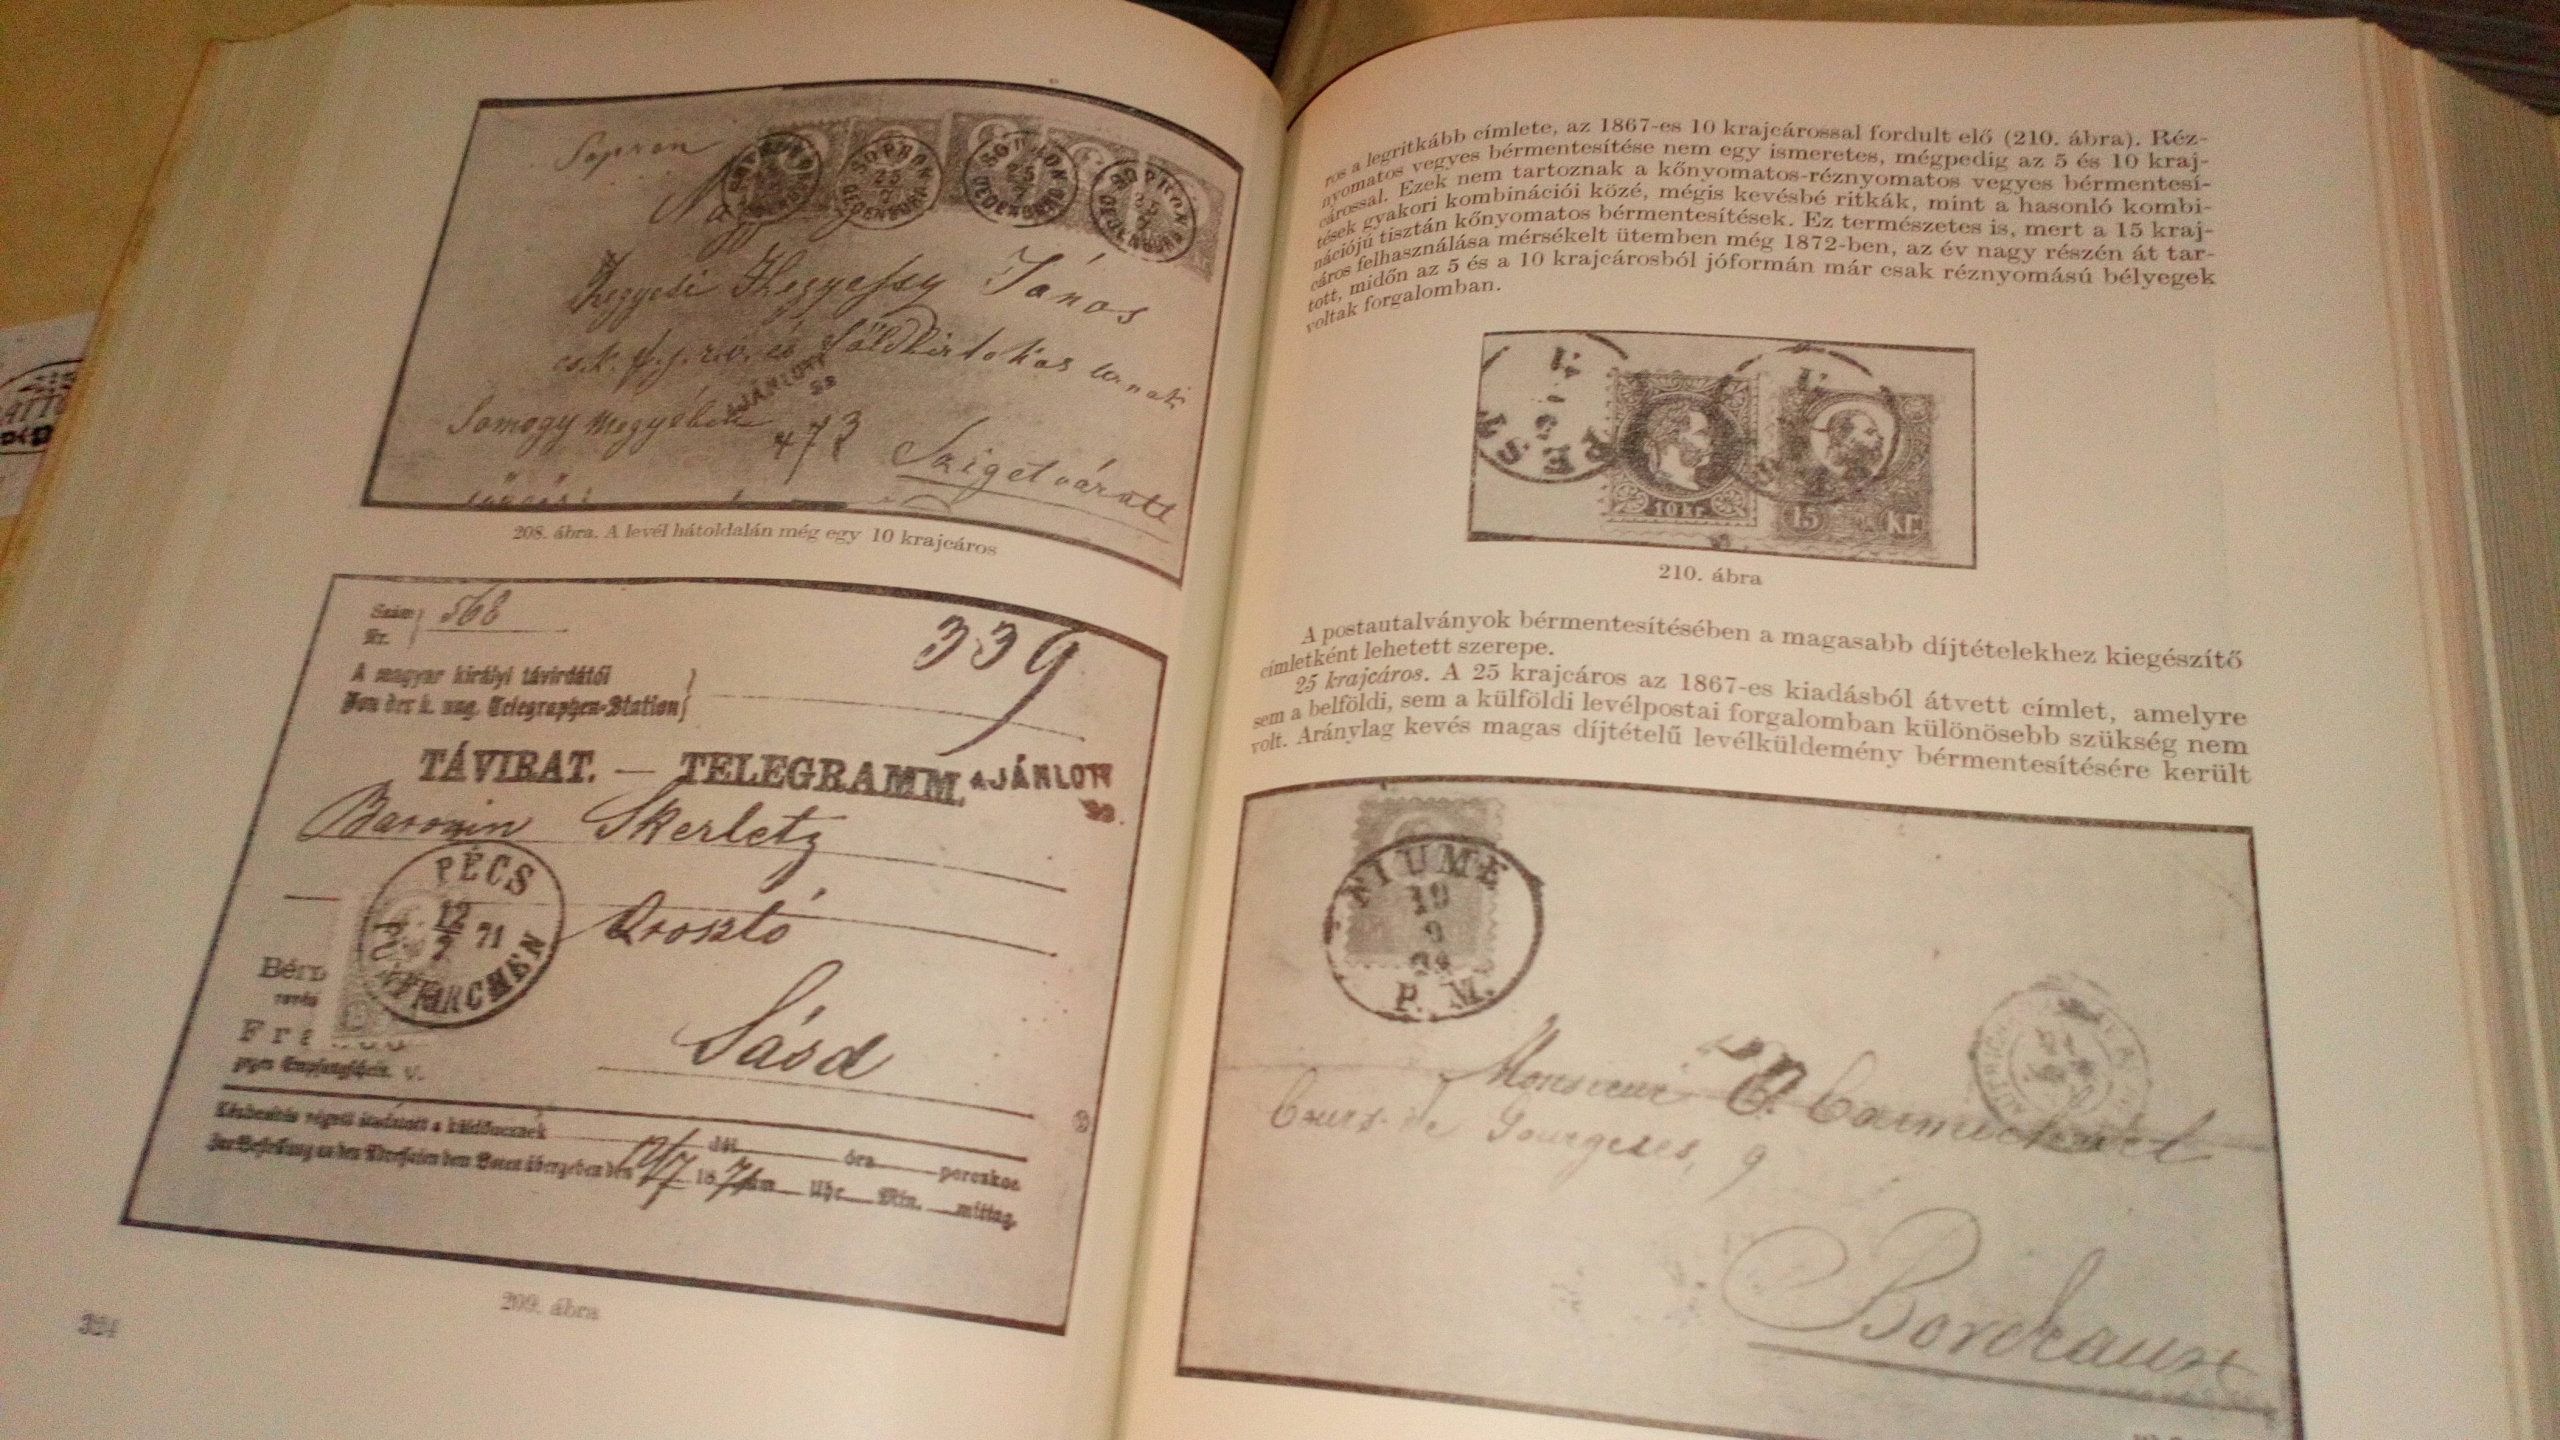 Sopron
SOPRON
OEDENBURG
SOPRON
OEDENBURG
Hegyesi Hegyessy János
földbirtokos
AJÁNLOTT
Somogy megyében
473
Szigetvárott
208. ábra. A levél hátoldalán még egy 10 krajcáros
Szám
Nr.
568
339
A magyar királyi távirdától
Von der k. ung. Telegraphen-Station
TÁVIRAT. — TELEGRAMM.
AJÁNLOTT
Baronin Skerletz
PÉCS
12
7 71
FÜNFKIRCHEN
Orosztó
Sásd
gegen Empfangschein.
Kézbesítés végett átadatott a küldöncnek
dél
óra
perczkor.
Zur Bestellung an den Adressaten dem Boten übergeben den 12/7 1871 um Uhr Min. mittag.
209. ábra
324
ros a legritkább címlete, az 1867-es 10 krajcárossal fordult elő (210. ábra). Réz-
nyomatos vegyes bérmentesítése nem egy ismeretes, mégpedig az 5 és 10 kraj-
cárossal. Ezek nem tartoznak a kőnyomatos-réznyomatos vegyes bérmentesí-
tések gyakori kombinációi közé, mégis kevésbé ritkák, mint a hasonló kombi-
nációjú tisztán kőnyomatos bérmentesítések. Ez természetes is, mert a 15 kraj-
cáros felhasználása mérsékelt ütemben még 1872-ben, az év nagy részén át tar-
tott, midőn az 5 és a 10 krajcárosból jóformán már csak réznyomású bélyegek
voltak forgalomban.
PEST
10 kr.
15 Kr
210. ábra
A postautalványok bérmentesítésében a magasabb díjtételekhez kiegészítő
címletként lehetett szerepe.
25 krajcáros. A 25 krajcáros az 1867-es kiadásból átvett címlet, amelyre
sem a belföldi, sem a külföldi levélpostai forgalomban különösebb szükség nem
volt. Aránylag kevés magas díjtételű levélküldemény bérmentesítésére került
FIUME
19
9
P. M.
Monsieur
Cours de Gourgues, 9
Bordeaux